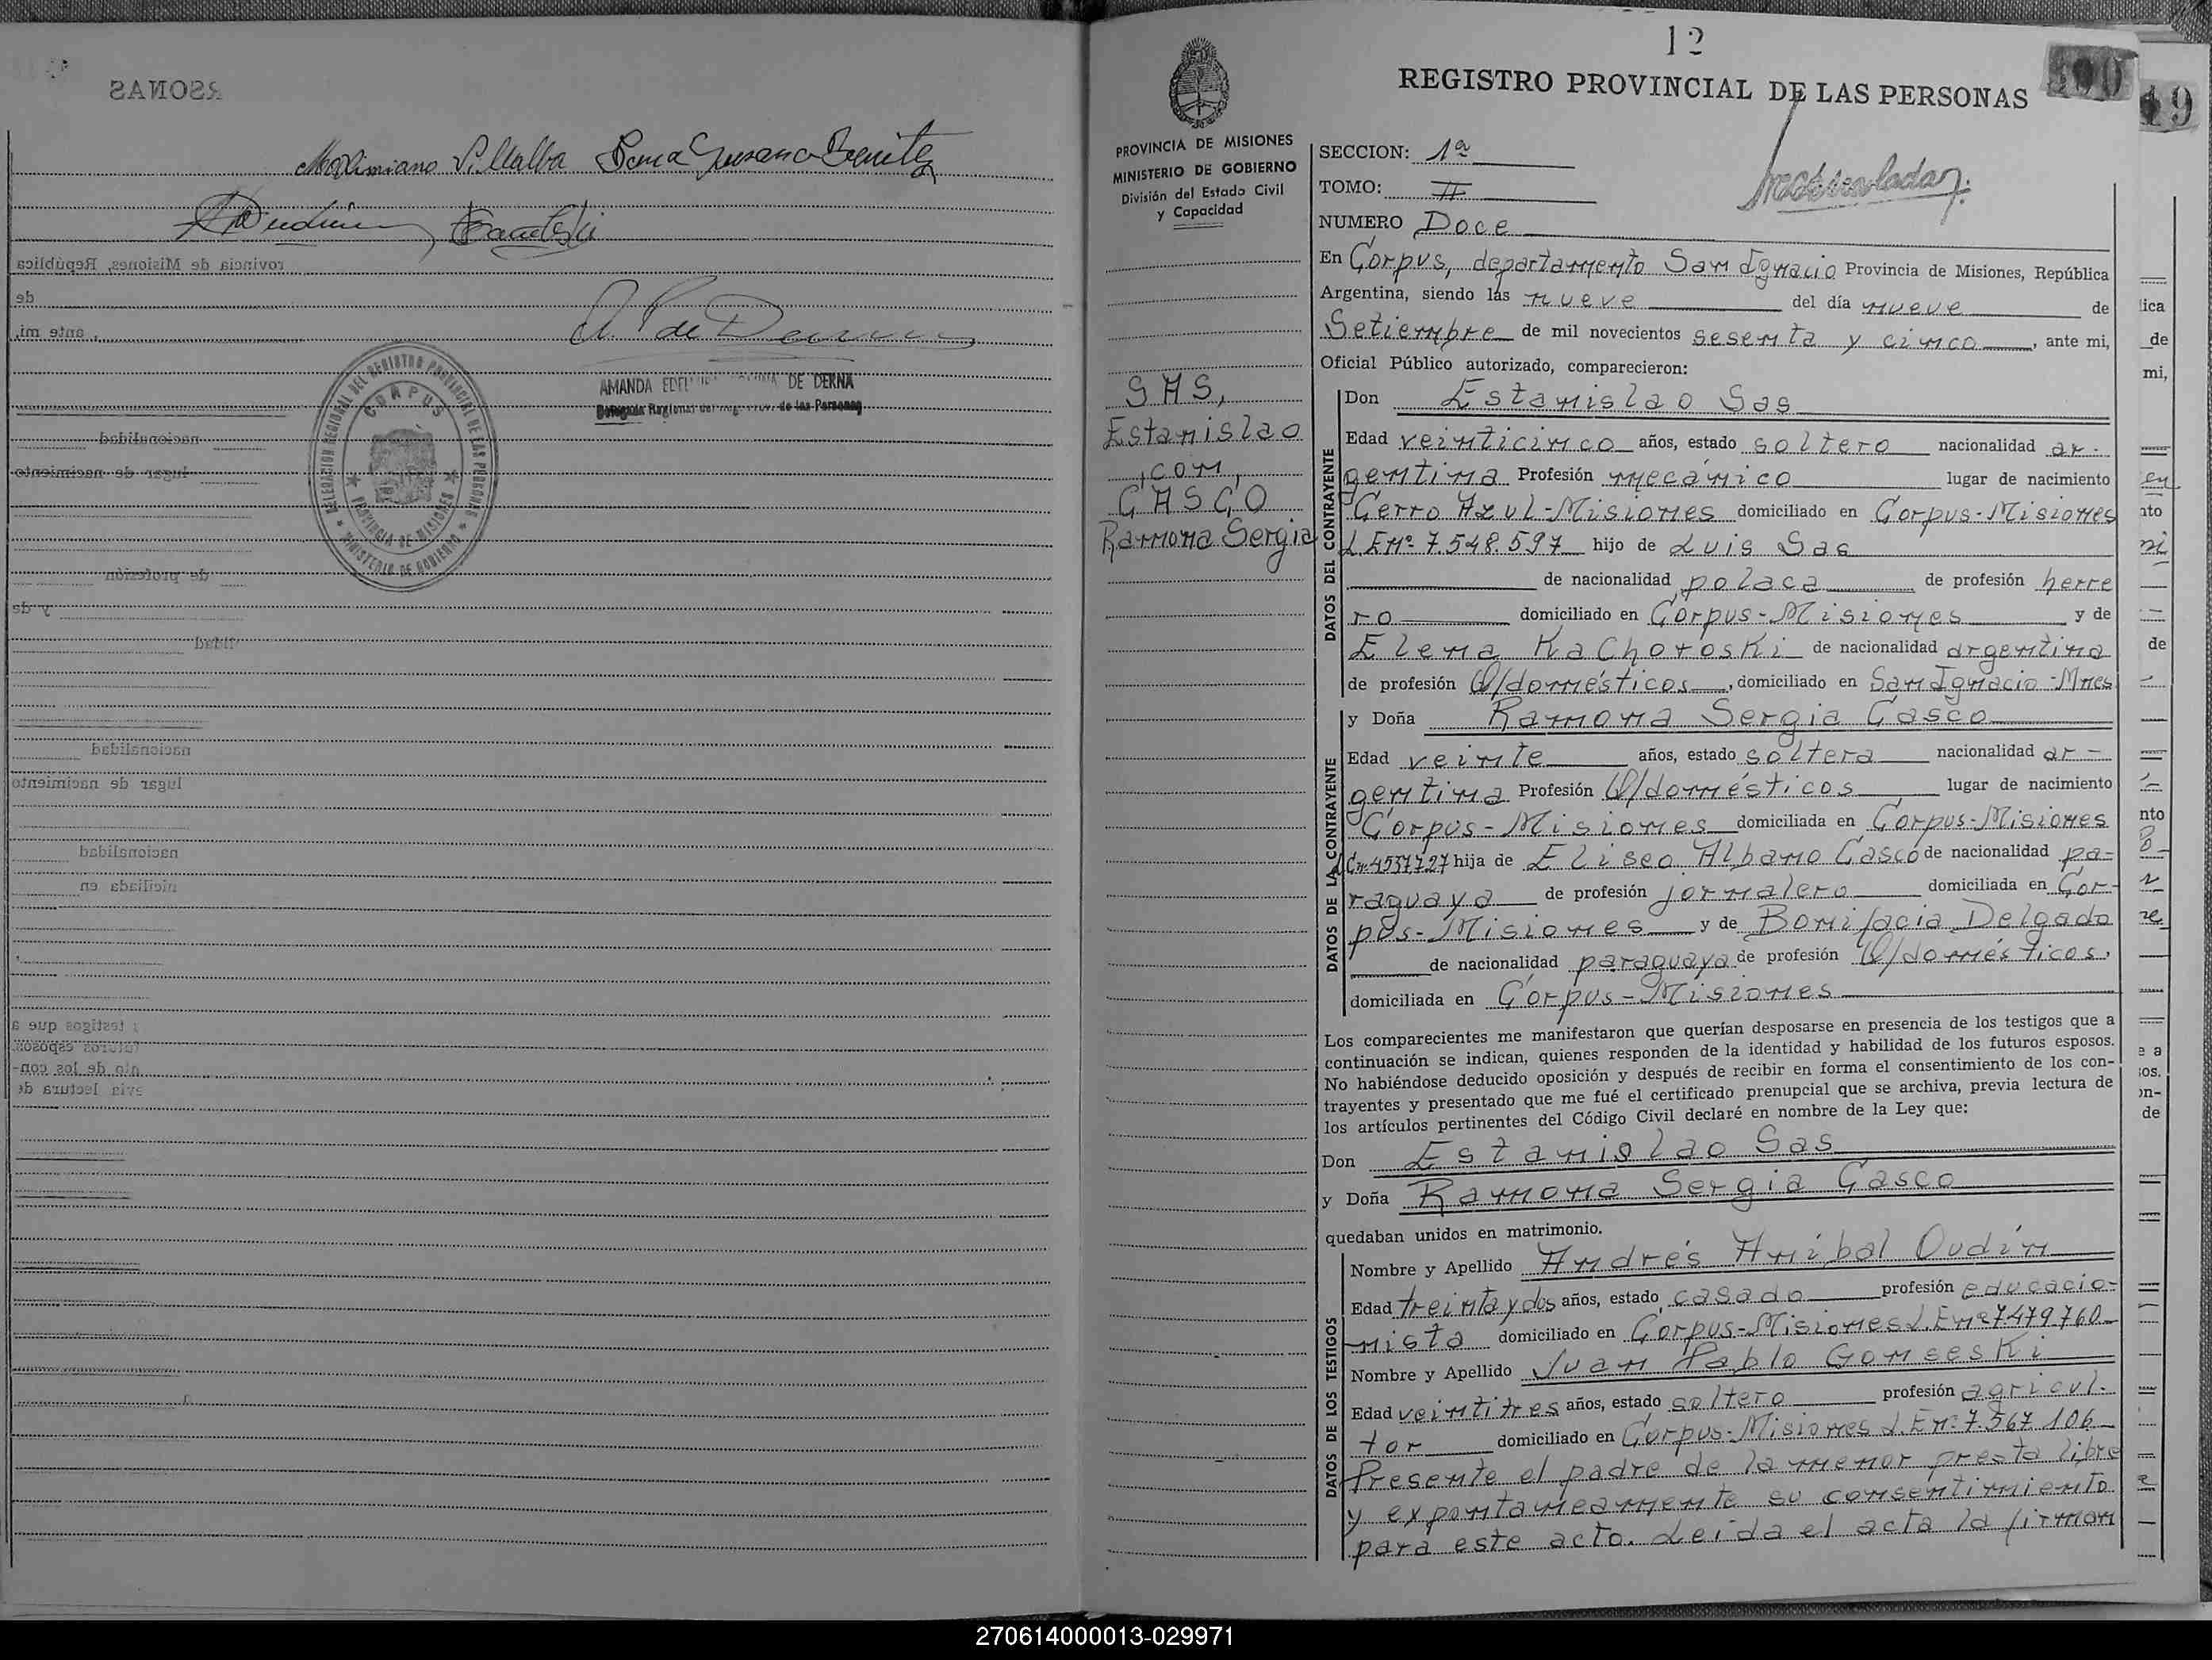 Maximiano Villalba
AMANDA DE DERNA
Delegada Regional del Reg. Prov. de las Personas
DELEGACION REGIONAL DEL REGISTRO PROVINCIAL DE LAS PERSONAS
CORPUS
PROVINCIA DE MISIONES
MINISTERIO DE GOBIERNO
12
REGISTRO PROVINCIAL DE LAS PERSONAS
PROVINCIA DE MISIONES
MINISTERIO DE GOBIERNO
División del Estado Civil
y Capacidad
SAS,
Estanislao
,con,
CASCO
Ramona Sergia
SECCION: 1ª
TOMO: II
NUMERO Doce
En Corpus, departamento San Ignacio Provincia de Misiones, República
Argentina, siendo las nueve del día nueve de
Setiembre de mil novecientos sesenta y cinco, ante mi,
Oficial Público autorizado, comparecieron:
DATOS DEL CONTRAYENTE
Don Estanislao Sas
Edad veinticinco años, estado soltero nacionalidad ar-
gentina Profesión mecánico lugar de nacimiento
Cerro Azul-Misiones domiciliado en Corpus-Misiones
L.Enº 7.548.597 hijo de Luis Sas
de nacionalidad polaca de profesión herre
ro domiciliado en Corpus-Misiones y de
Elena Kachoroski de nacionalidad argentina
de profesión Q/domésticos, domiciliado en San Ignacio-Mnes
DATOS DE LA CONTRAYENTE
y Doña Ramona Sergia Casco
Edad veinte años, estado soltera nacionalidad ar-
gentina Profesión Q/domésticos lugar de nacimiento
Corpus-Misiones domiciliada en Corpus-Misiones
hija de Eliseo Albano Casco de nacionalidad pa-
raguaya de profesión jornalero domiciliada en Cor-
pus-Misiones y de Bonifacia Delgado
de nacionalidad paraguaya de profesión Q/domésticos,
domiciliada en Corpus-Misiones
Los comparecientes me manifestaron que querían desposarse en presencia de los testigos que a
continuación se indican, quienes responden de la identidad y habilidad de los futuros esposos.
No habiéndose deducido oposición y después de recibir en forma el consentimiento de los con-
trayentes y presentado que me fué el certificado prenupcial que se archiva, previa lectura de
los artículos pertinentes del Código Civil declaré en nombre de la Ley que:
Don Estanislao Sas
y Doña Ramona Sergia Casco
quedaban unidos en matrimonio.
DATOS DE LOS TESTIGOS
Nombre y Apellido Andrés Aníbal Oudín
Edad treinta y dos años, estado casado profesión educacio-
nista domiciliado en Corpus-Misiones L.Enº7.479.760
Nombre y Apellido Juan Pablo Gonseski
Edad veintitres años, estado soltero profesión agricul-
tor domiciliado en Corpus-Misiones L.Enº 7.567.106
Presente el padre de la menor presta libre
y expontaneamente su consentimiento
para este acto. Leida el acta la firman
270614000013-029971